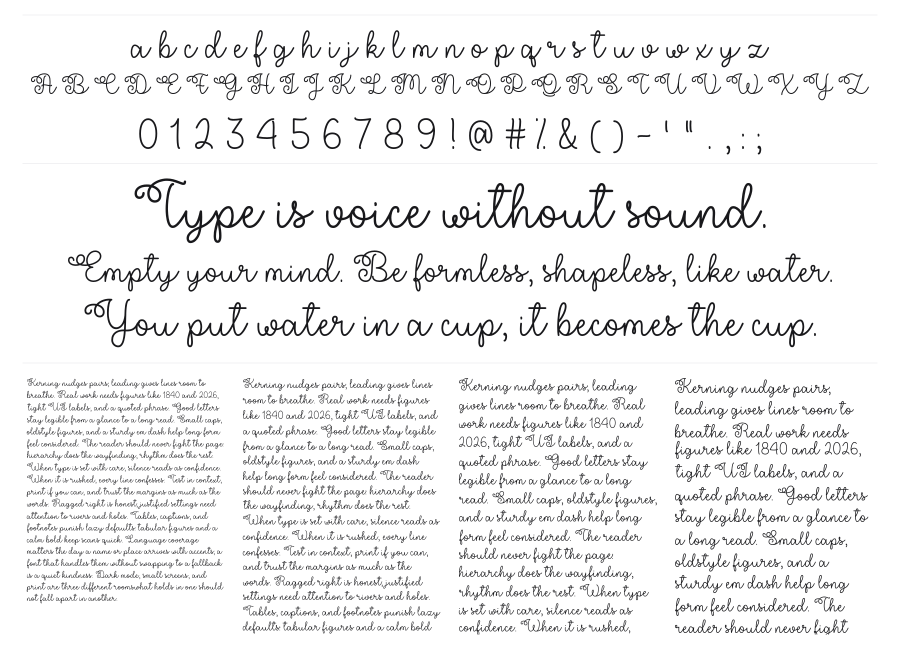 a b c d e f g h i j k l m n o p q r s t u v w x y z
A B C D E F G H I J K L M N O P Q R S T U V W X Y Z
0 1 2 3 4 5 6 7 8 9 ! @ # % & ( ) - ' " . , : ;
Type is voice without sound.
Empty your mind. Be formless, shapeless, like water.
You put water in a cup, it becomes the cup.
Kerning nudges pairs, leading gives lines room to
breathe. Real work needs figures like 1840 and 2026,
tight UI labels, and a quoted phrase. Good letters
stay legible from a glance to a long read. Small caps,
oldstyle figures, and a sturdy em dash help long form
feel considered. The reader should never fight the page
hierarchy does the wayfinding, rhythm does the rest.
When type is set with care, silence reads as confidence.
When it is rushed, every line confesses. Test in context,
print if you can, and trust the margins as much as the
words. Ragged right is honest justified settings need
attention to rivers and holes. Tables, captions, and
footnotes punish lazy defaults tabular figures and a
calm bold keep scans quick. Language coverage
matters the day a name or place arrives with accents, a
font that handles them without swapping to a fallback
is a quiet kindness. Dark mode, small screens, and
print are three different rooms what holds in one should
not fall apart in another
Kerning nudges pairs, leading gives lines
room to breathe. Real work needs figures
like 1840 and 2026, tight UI labels, and
a quoted phrase. Good letters stay legible
from a glance to a long read. Small caps,
oldstyle figures, and a sturdy em dash
help long form feel considered. The reader
should never fight the page hierarchy does
the wayfinding, rhythm does the rest.
When type is set with care, silence reads as
confidence. When it is rushed, every line
confesses. Test in context, print if you can,
and trust the margins as much as the
words. Ragged right is honest justified
settings need attention to rivers and holes.
Tables, captions, and footnotes punish lazy
defaults tabular figures and a calm bold
Kerning nudges pairs, leading
gives lines room to breathe. Real
work needs figures like 1840 and
2026, tight UI labels, and a
quoted phrase. Good letters stay
legible from a glance to a long
read. Small caps, oldstyle figures,
and a sturdy em dash help long
form feel considered. The reader
should never fight the page
hierarchy does the wayfinding,
rhythm does the rest. When type
is set with care, silence reads as
confidence. When it is rushed,
Kerning nudges pairs,
leading gives lines room to
breathe. Real work needs
figures like 1840 and 2026,
tight UI labels, and a
quoted phrase. Good letters
stay legible from a glance to
a long read. Small caps,
oldstyle figures, and a
sturdy em dash help long
form feel considered. The
reader should never fight